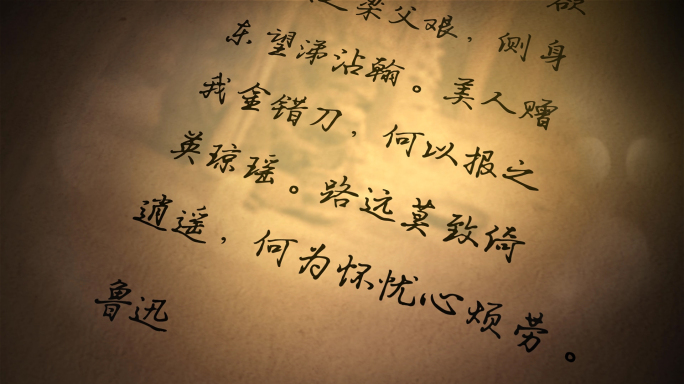 之梁父艰，欲
东望涕沾翰。侧身
美人赠
我金错刀，何以报之
英琼瑶。路远莫致倚
逍遥，何为怀忧心烦劳。
鲁迅